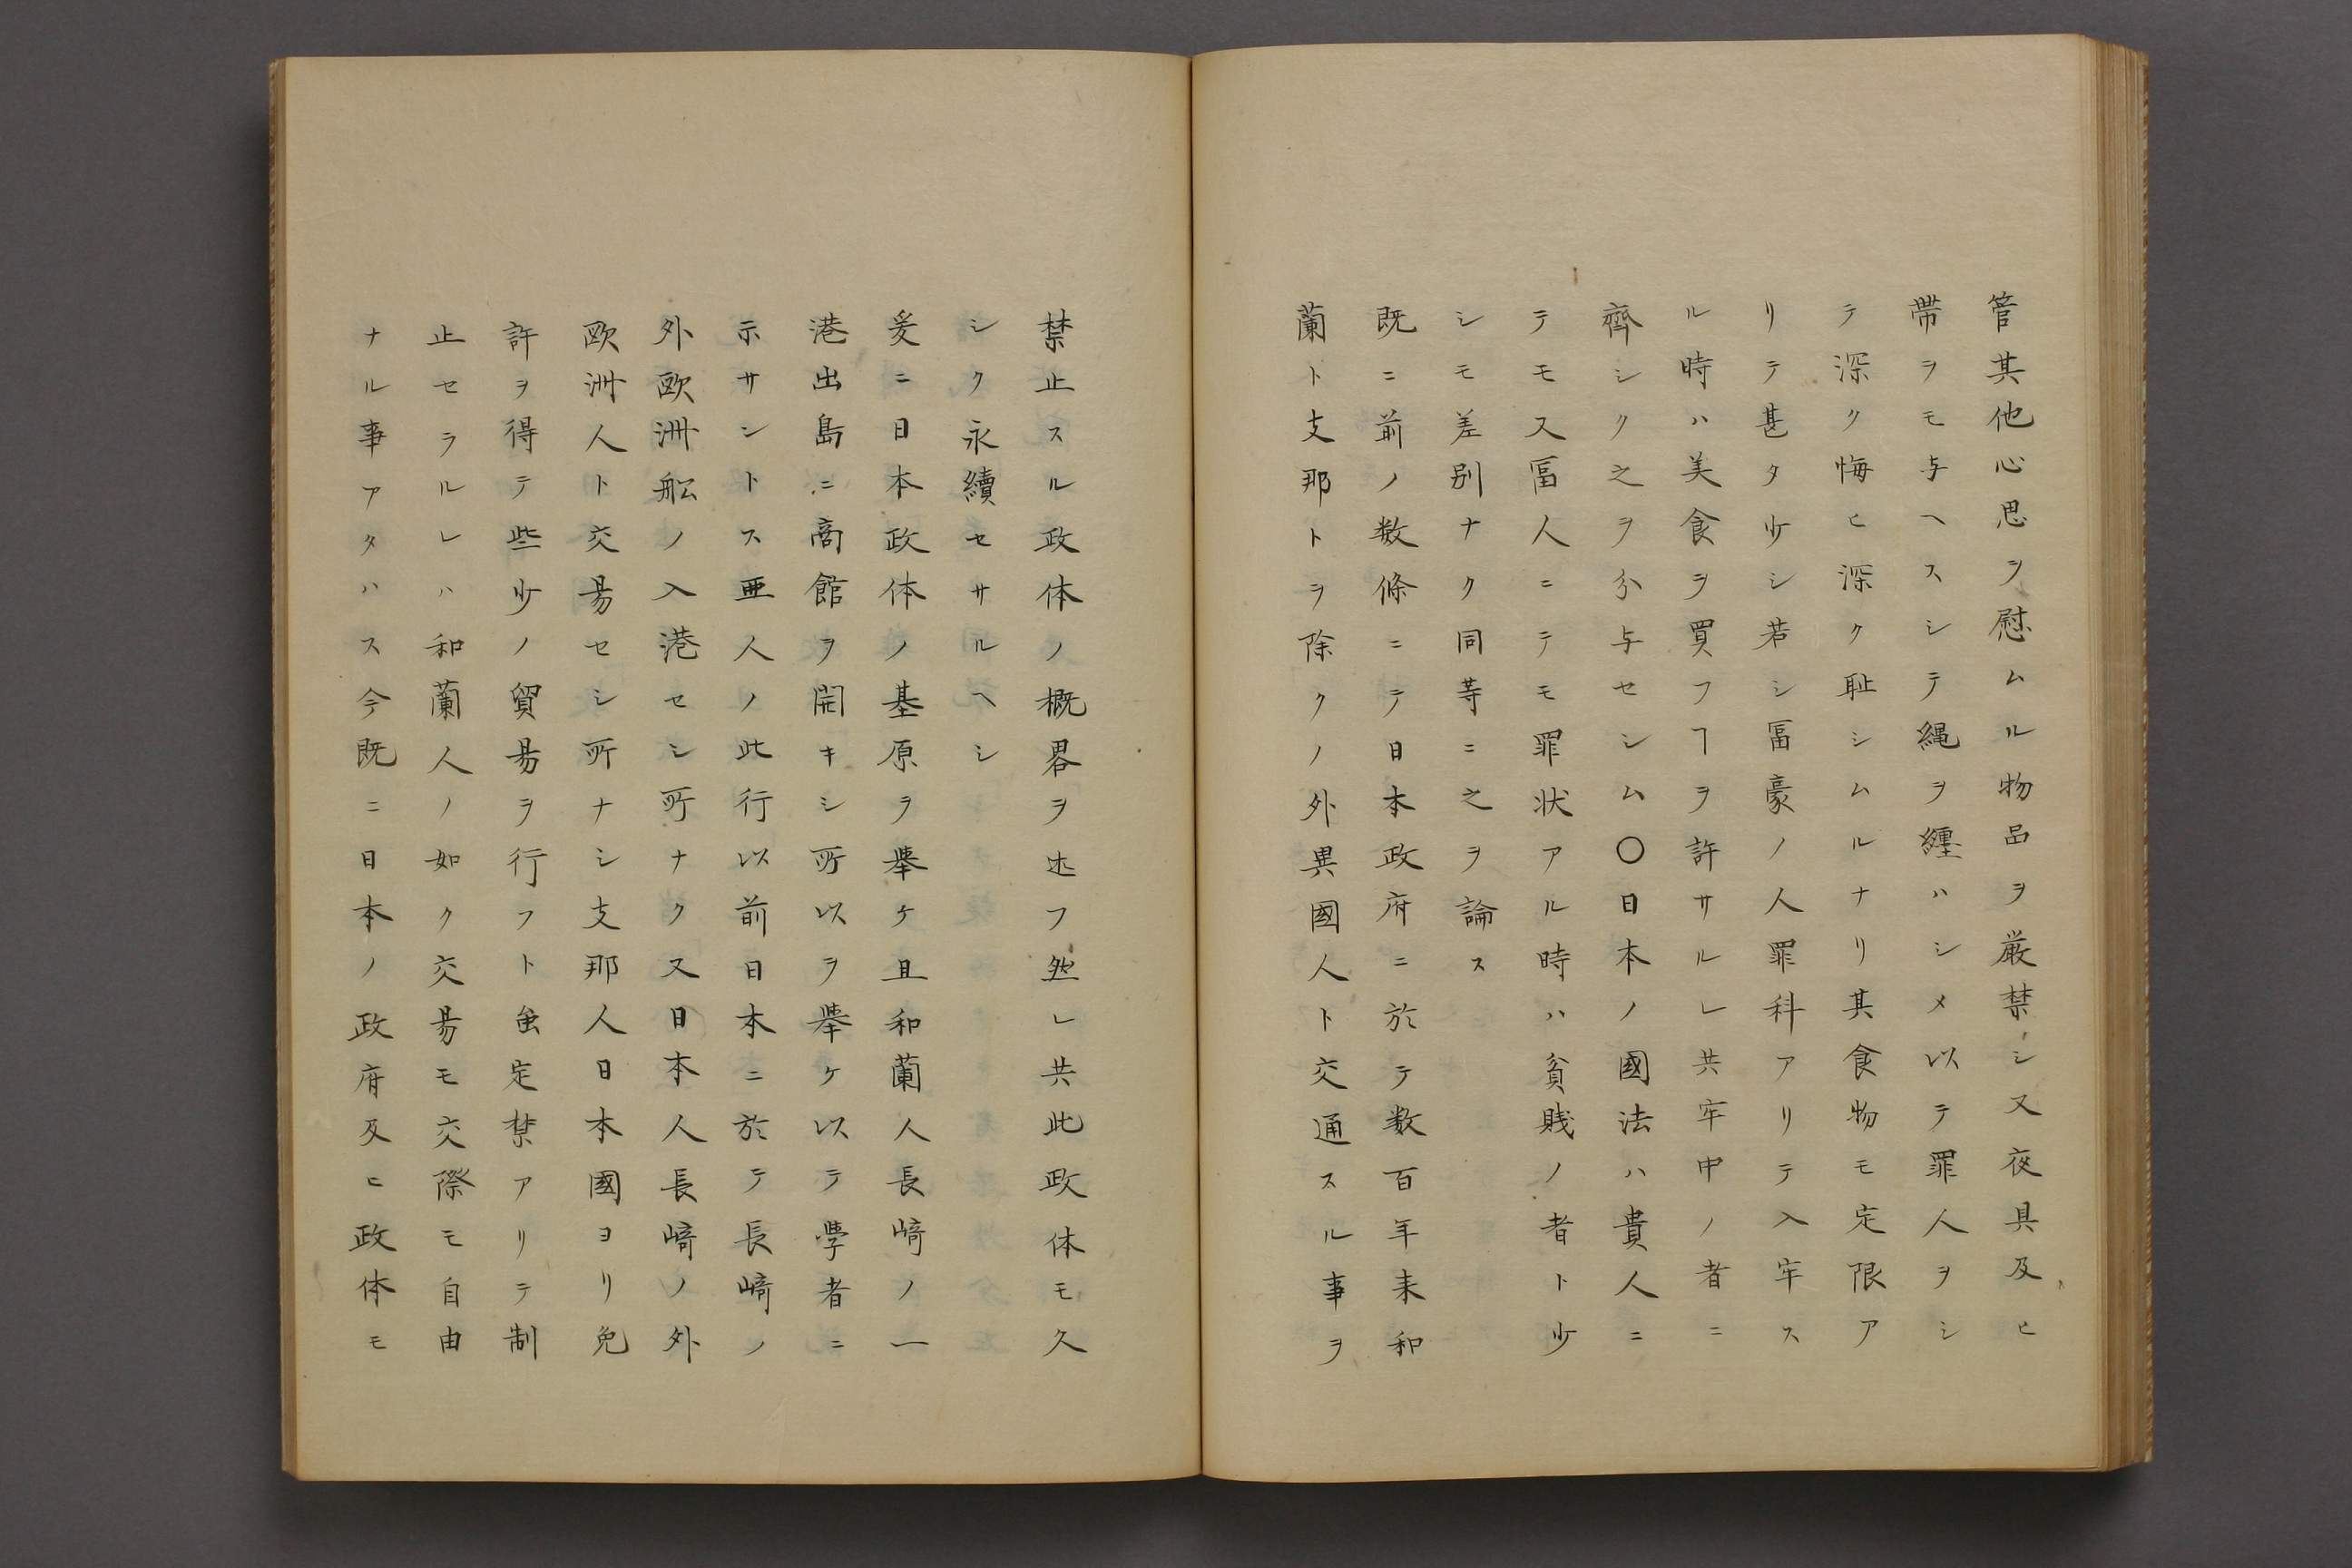 管其他心思ヲ慰ムル物品ヲ厳禁シ又夜具及ヒ
帯ヲモ与ヘスシテ縄ヲ纏ハシメ以テ罪人ヲシ
テ深ク悔ヒ深ク耻シムルナリ其食物モ定限ア
リテ甚タ少シ若シ冨豪ノ人罪科アリテ入牢ス
ル時ハ美食ヲ買フヿヲ許サルレ共牢中ノ者ニ
齊シク之ヲ分与セシム〇日本ノ國法ハ貴人ニ
テモ又冨人ニテモ罪状アル時ハ貧賎ノ者ト少
シモ差別ナク同等ニ之ヲ論ス
既ニ前ノ数條ニテ日本政府ニ於テ数百年来和
蘭ト支那トヲ除クノ外異國人ト交通スル事ヲ
禁止スル政体ノ概畧ヲ述フ然レ共此政体モ久
シク永續セサルヘシ
爰ニ日本政体ノ基原ヲ舉ケ且和蘭人長﨑ノ一
港出島ニ商館ヲ開キシ所以ヲ舉ケ以テ學者ニ
示サントス亜人ノ此行以前日本ニ於テ長﨑ノ
外欧洲舩ノ入港セシ所ナク又日本人長﨑ノ外
欧洲人ト交易セシ所ナシ支那人日本國ヨリ免
許ヲ得テ些少ノ貿易ヲ行フト虽定禁アリテ制
止セラルレハ和蘭人ノ如ク交易モ交際モ自由
ナル事アタハス今既ニ日本ノ政府及ヒ政体モ